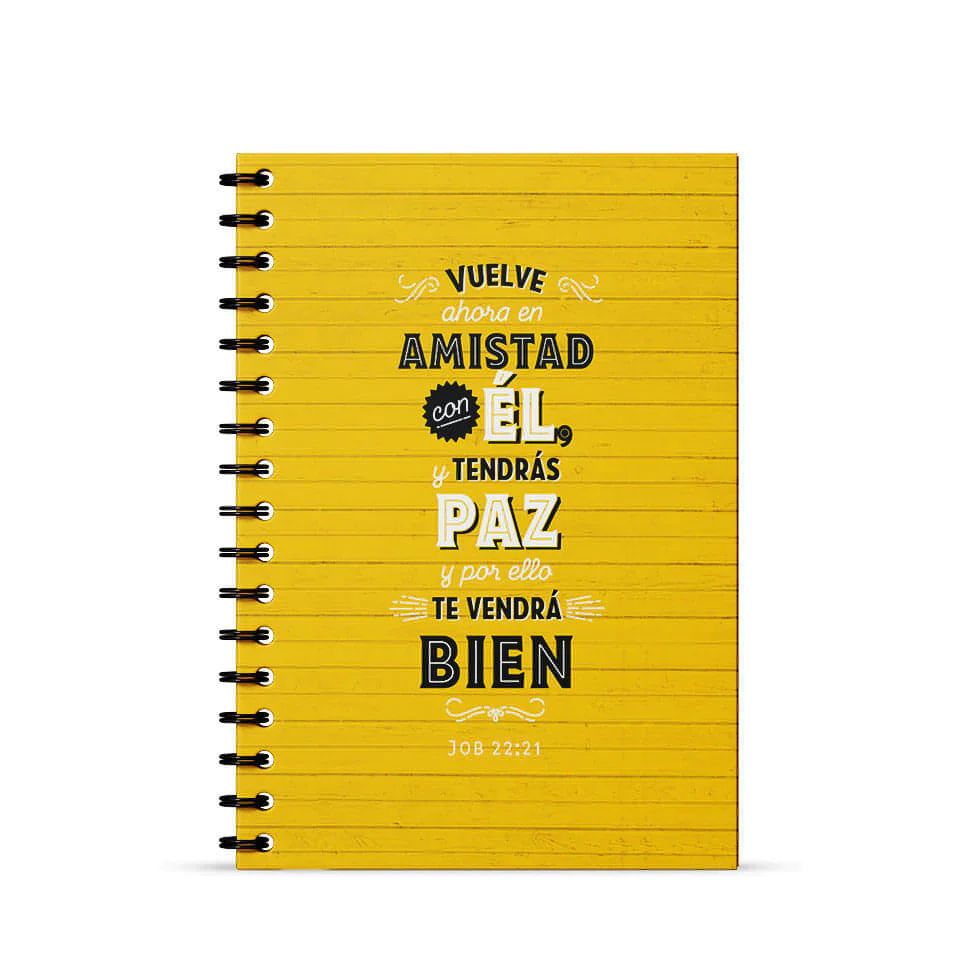 VUELVE
ahora en
AMISTAD
con ÉL,
y TENDRÁS
PAZ
y por ello
TE VENDRÁ
BIEN
JOB 22:21